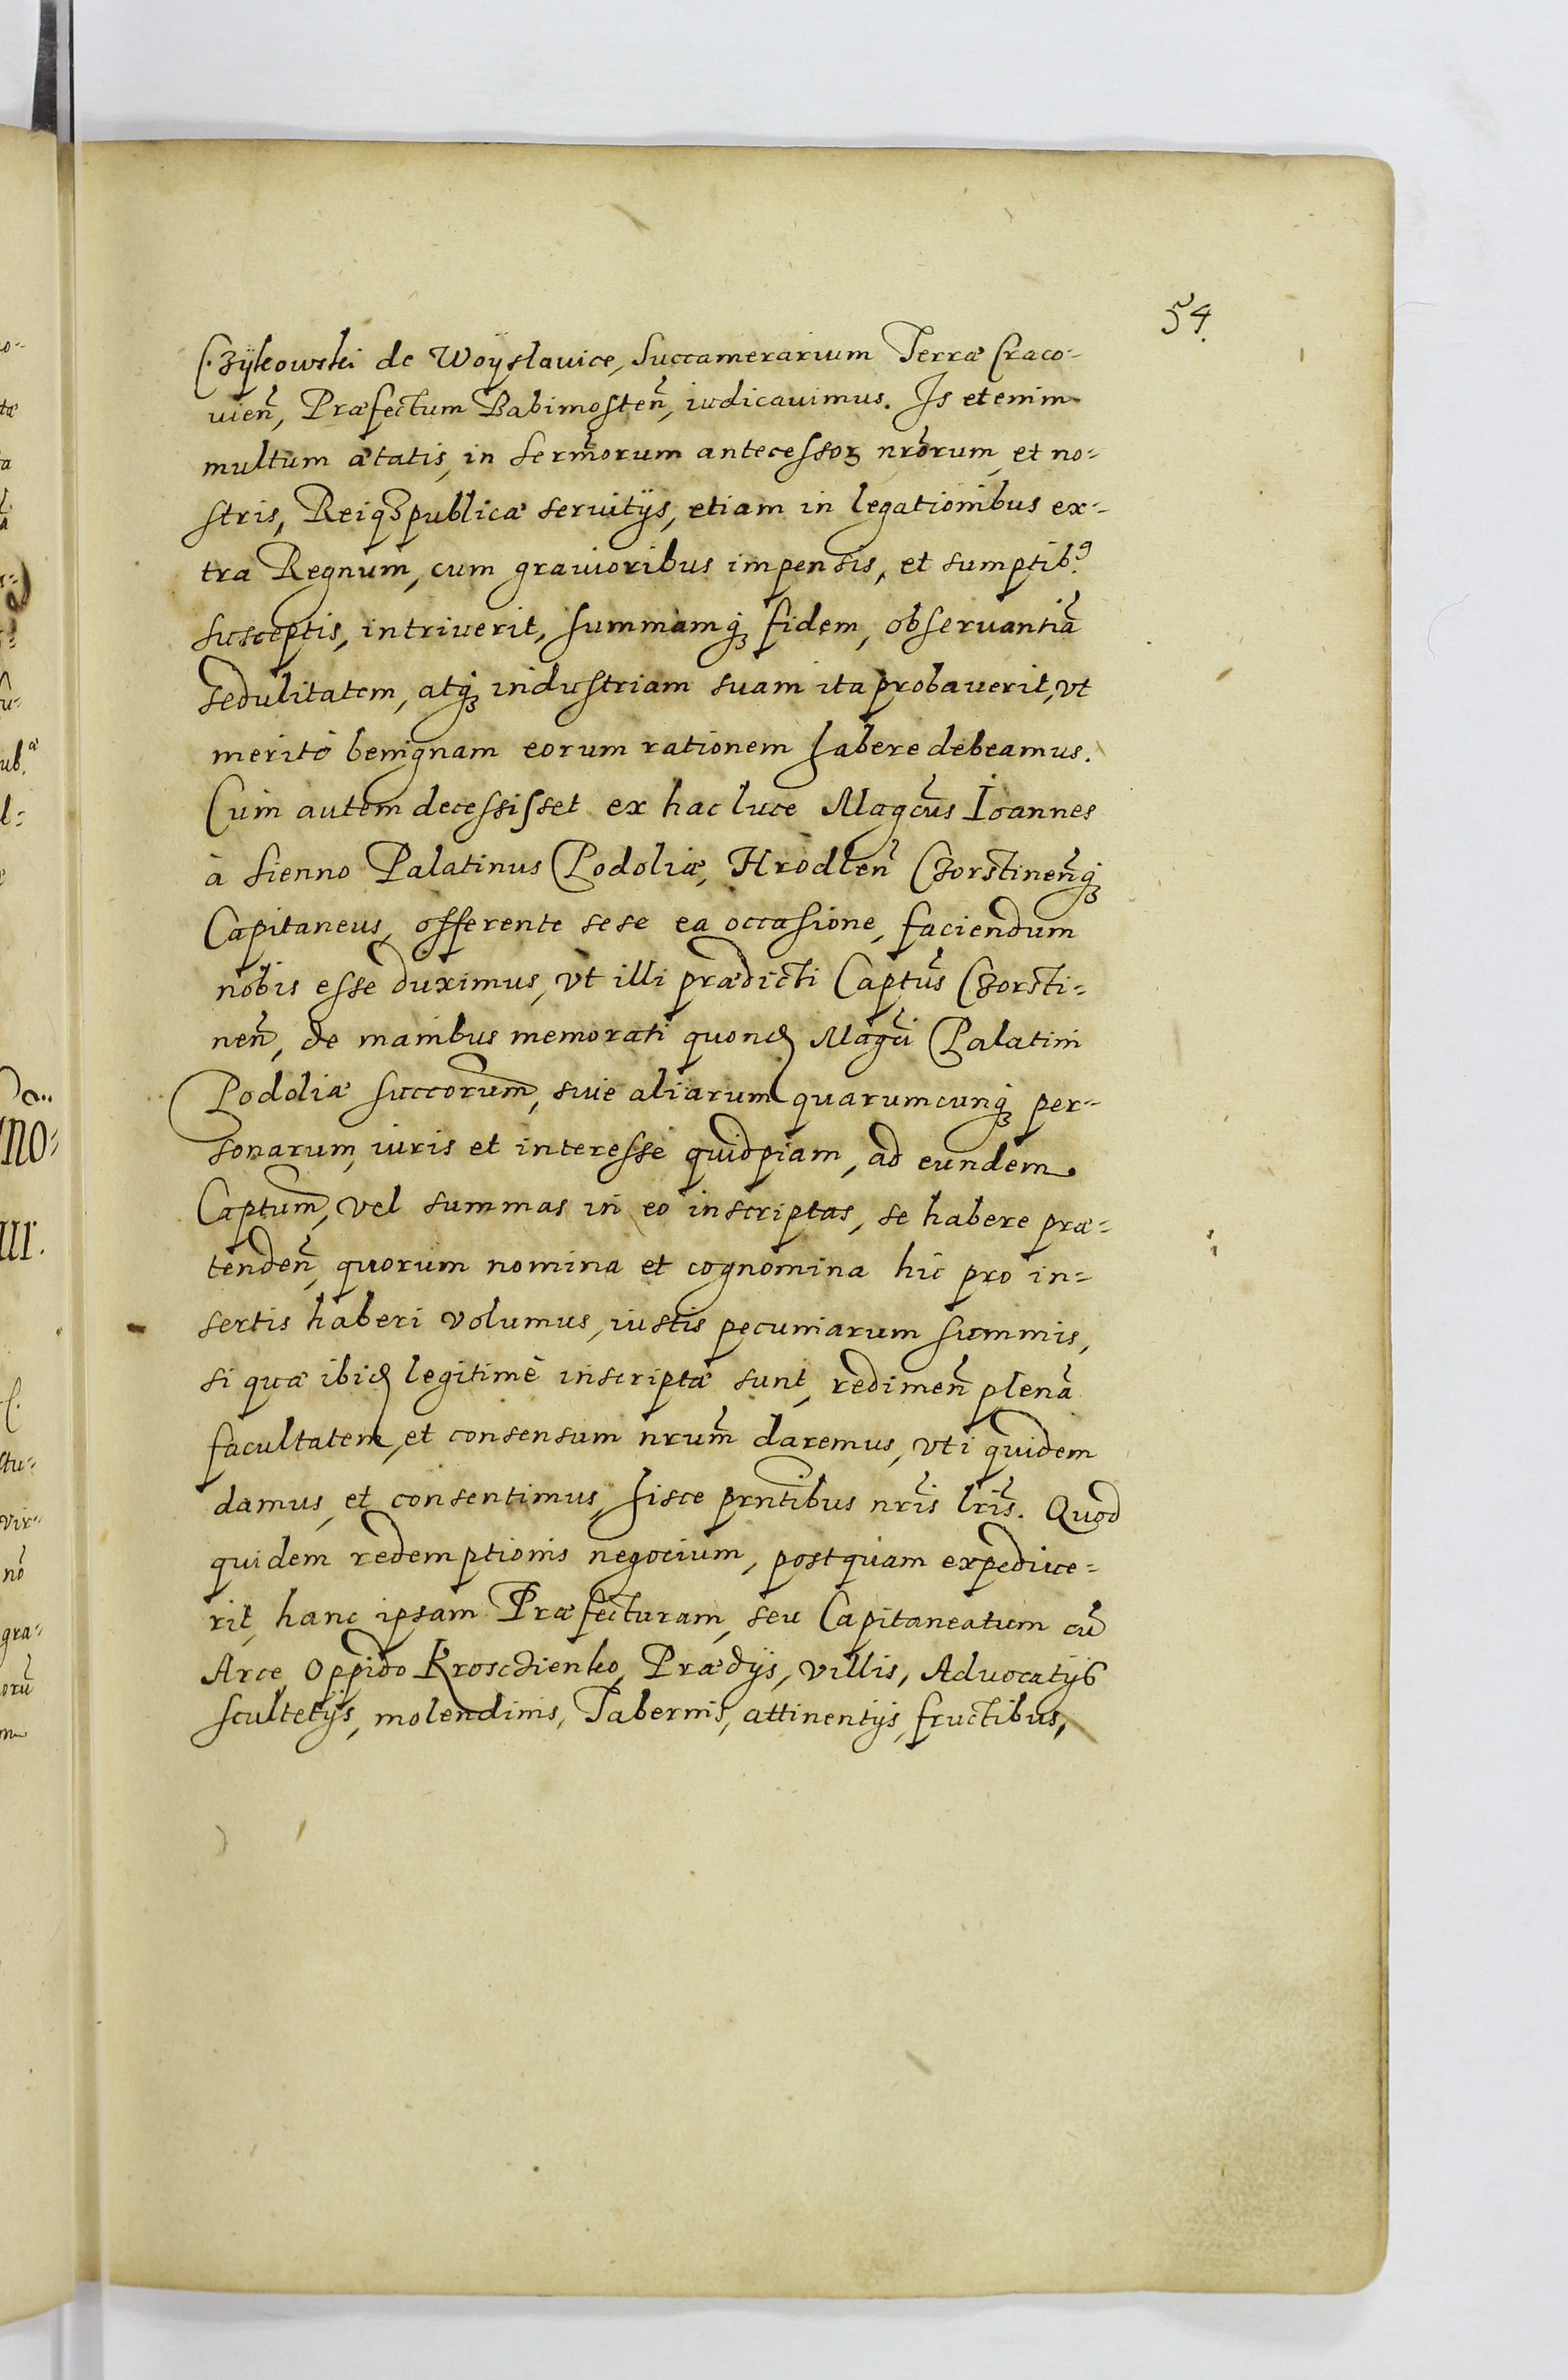 54.
Czÿkowski de Woÿslauice, Succamerarium Terræ Craco-
vieñ, Præfectum Babimosteñ, iudicauimus. Is etenim
multum ætatis, in Serm̃orum antecessoꝝ nrõrum, et no-
stris, Reiqꝫpublicæ seruitÿs, etiam in legationibus ex-
tra Regnum, cum grauioribus impensis, et sumptibꝰ
susceptis, intriuerit, summamqꝫ fidem, obseruantiã
sedulitatem, atqꝫ industriam suam ita probauerit, vt
meritò benignam eorum rationem habere debeamus.
Cum autem decessisset ex hac luce Magcũs Ioannes
à Sienno Palatinus Podoliæ, Hrodleñ Czorstineñqꝫ
Capitaneus, offerente sese ea occasione, faciendum
nobis esse duximus, vt illi prædicti Captũs Czorsti-
neñ, de manibus memorati quond Magcĩ Palatini
Podoliæ Succorum̃, siue aliarum quarumcunqꝫ per-
sonarum, iuris et interesse quidpiam, ad eundem
Captum̃, vel summas in eo inscriptas, se habere præ-
tendeñ, quorum nomina et cognomina hic pro in-
sertis haberi volumus, iustis pecuniarum summis,
si quæ ibid legitimè inscriptæ sunt, redimeñ plenã
facultatem, et consensum nrum̃ daremus, vti quidem
damus, et consentimus, hisce prñtibus nrĩs lrĩs. Quod
quidem redemptionis negocium, postquam expediue-
rit, hanc ipsam Præfecturam, seu Capitaneatum cũ
Arce, Oppido Kroscżienko, Prædÿs, villis, Aduocatÿs
scultetÿs, molendinis, Tabernis, attinentÿs, fructibus,